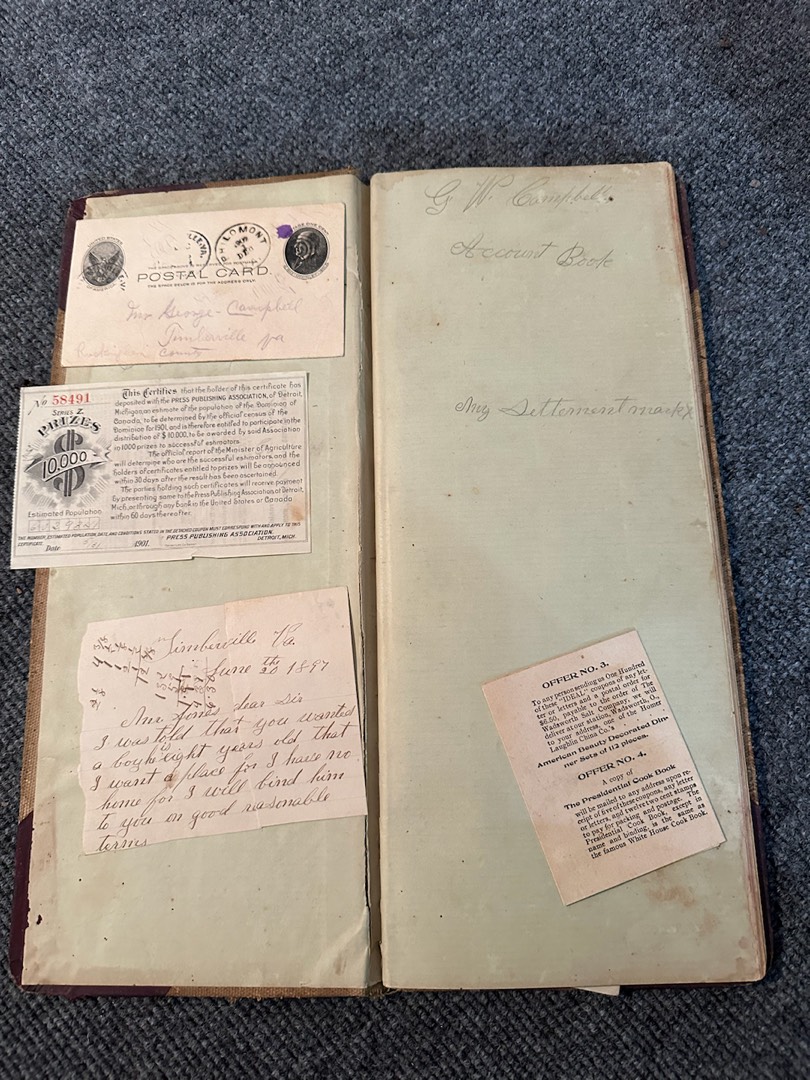 UNITED STATES
OF AMERICA
PHILOMONT
SERIES OF 
POSTAL CARD.
THE SPACE BELOW IS FOR THE ADDRESS ONLY.
George Campbell
Timberville Va
Rockingham County
No 58491
SERIES Z.
PRIZES
$10,000
Estimated Population
This Certifies that the holder of this certificate has
deposited with the PRESS PUBLISHING ASSOCIATION, of Detroit,
Michigan, an estimate of the population of the Dominion of
Canada, to be determined by the official census of the
Dominion for 1901, and is therefore entitled to participate in the
distribution of $10,000, to be awarded by said Association
in 1000 prizes to successful estimators.
The official report of the Minister of Agriculture
will determine who are the successful estimators, and the
holders of certificates entitled to prizes will be announced
within 30 days after the result has been ascertained.
The parties holding such certificates will receive payment
by presenting same to the Press Publishing Association, of Detroit,
Mich., or through any bank in the United States or Canada
within 60 days thereafter.
THE NUMBER, ESTIMATED POPULATION, DATE, AND CONDITIONS STATED IN THE DETACHED COUPON MUST CORRESPOND WITH AND APPLY TO THIS
CERTIFICATE.
Date 1901.
PRESS PUBLISHING ASSOCIATION.
DETROIT, MICH.
Timberville Va.
June the 20 1897
Mr. Jones, dear Sir
I was told that you wanted
a boy eight years old that
I want a place for I have no
home for I will bind him
to you on good reasonable
terms
G W. Campbell
Account Book
My Settlement mark X
OFFER NO. 3.
To any person sending us One Hundred
of these "IDEAL" coupons of any let-
ter or letters and a postal order for
$6.50, payable to the order of The
Wadsworth Salt Company, we will
deliver at our station, Wadsworth, O.,
to your address, one of the Homer
Laughlin China Co.'s
American Beauty Decorated Din-
ner Sets of 112 pieces.
OFFER NO. 4.
A copy of
The Presidential Cook Book
will be mailed to any address upon re-
ceipt of five of these coupons, any letter
or letters, and twelve two cent stamps
to pay for packing and postage. The
Presidential Cook Book, except in
name and binding is the same as
the famous White House Cook Book.